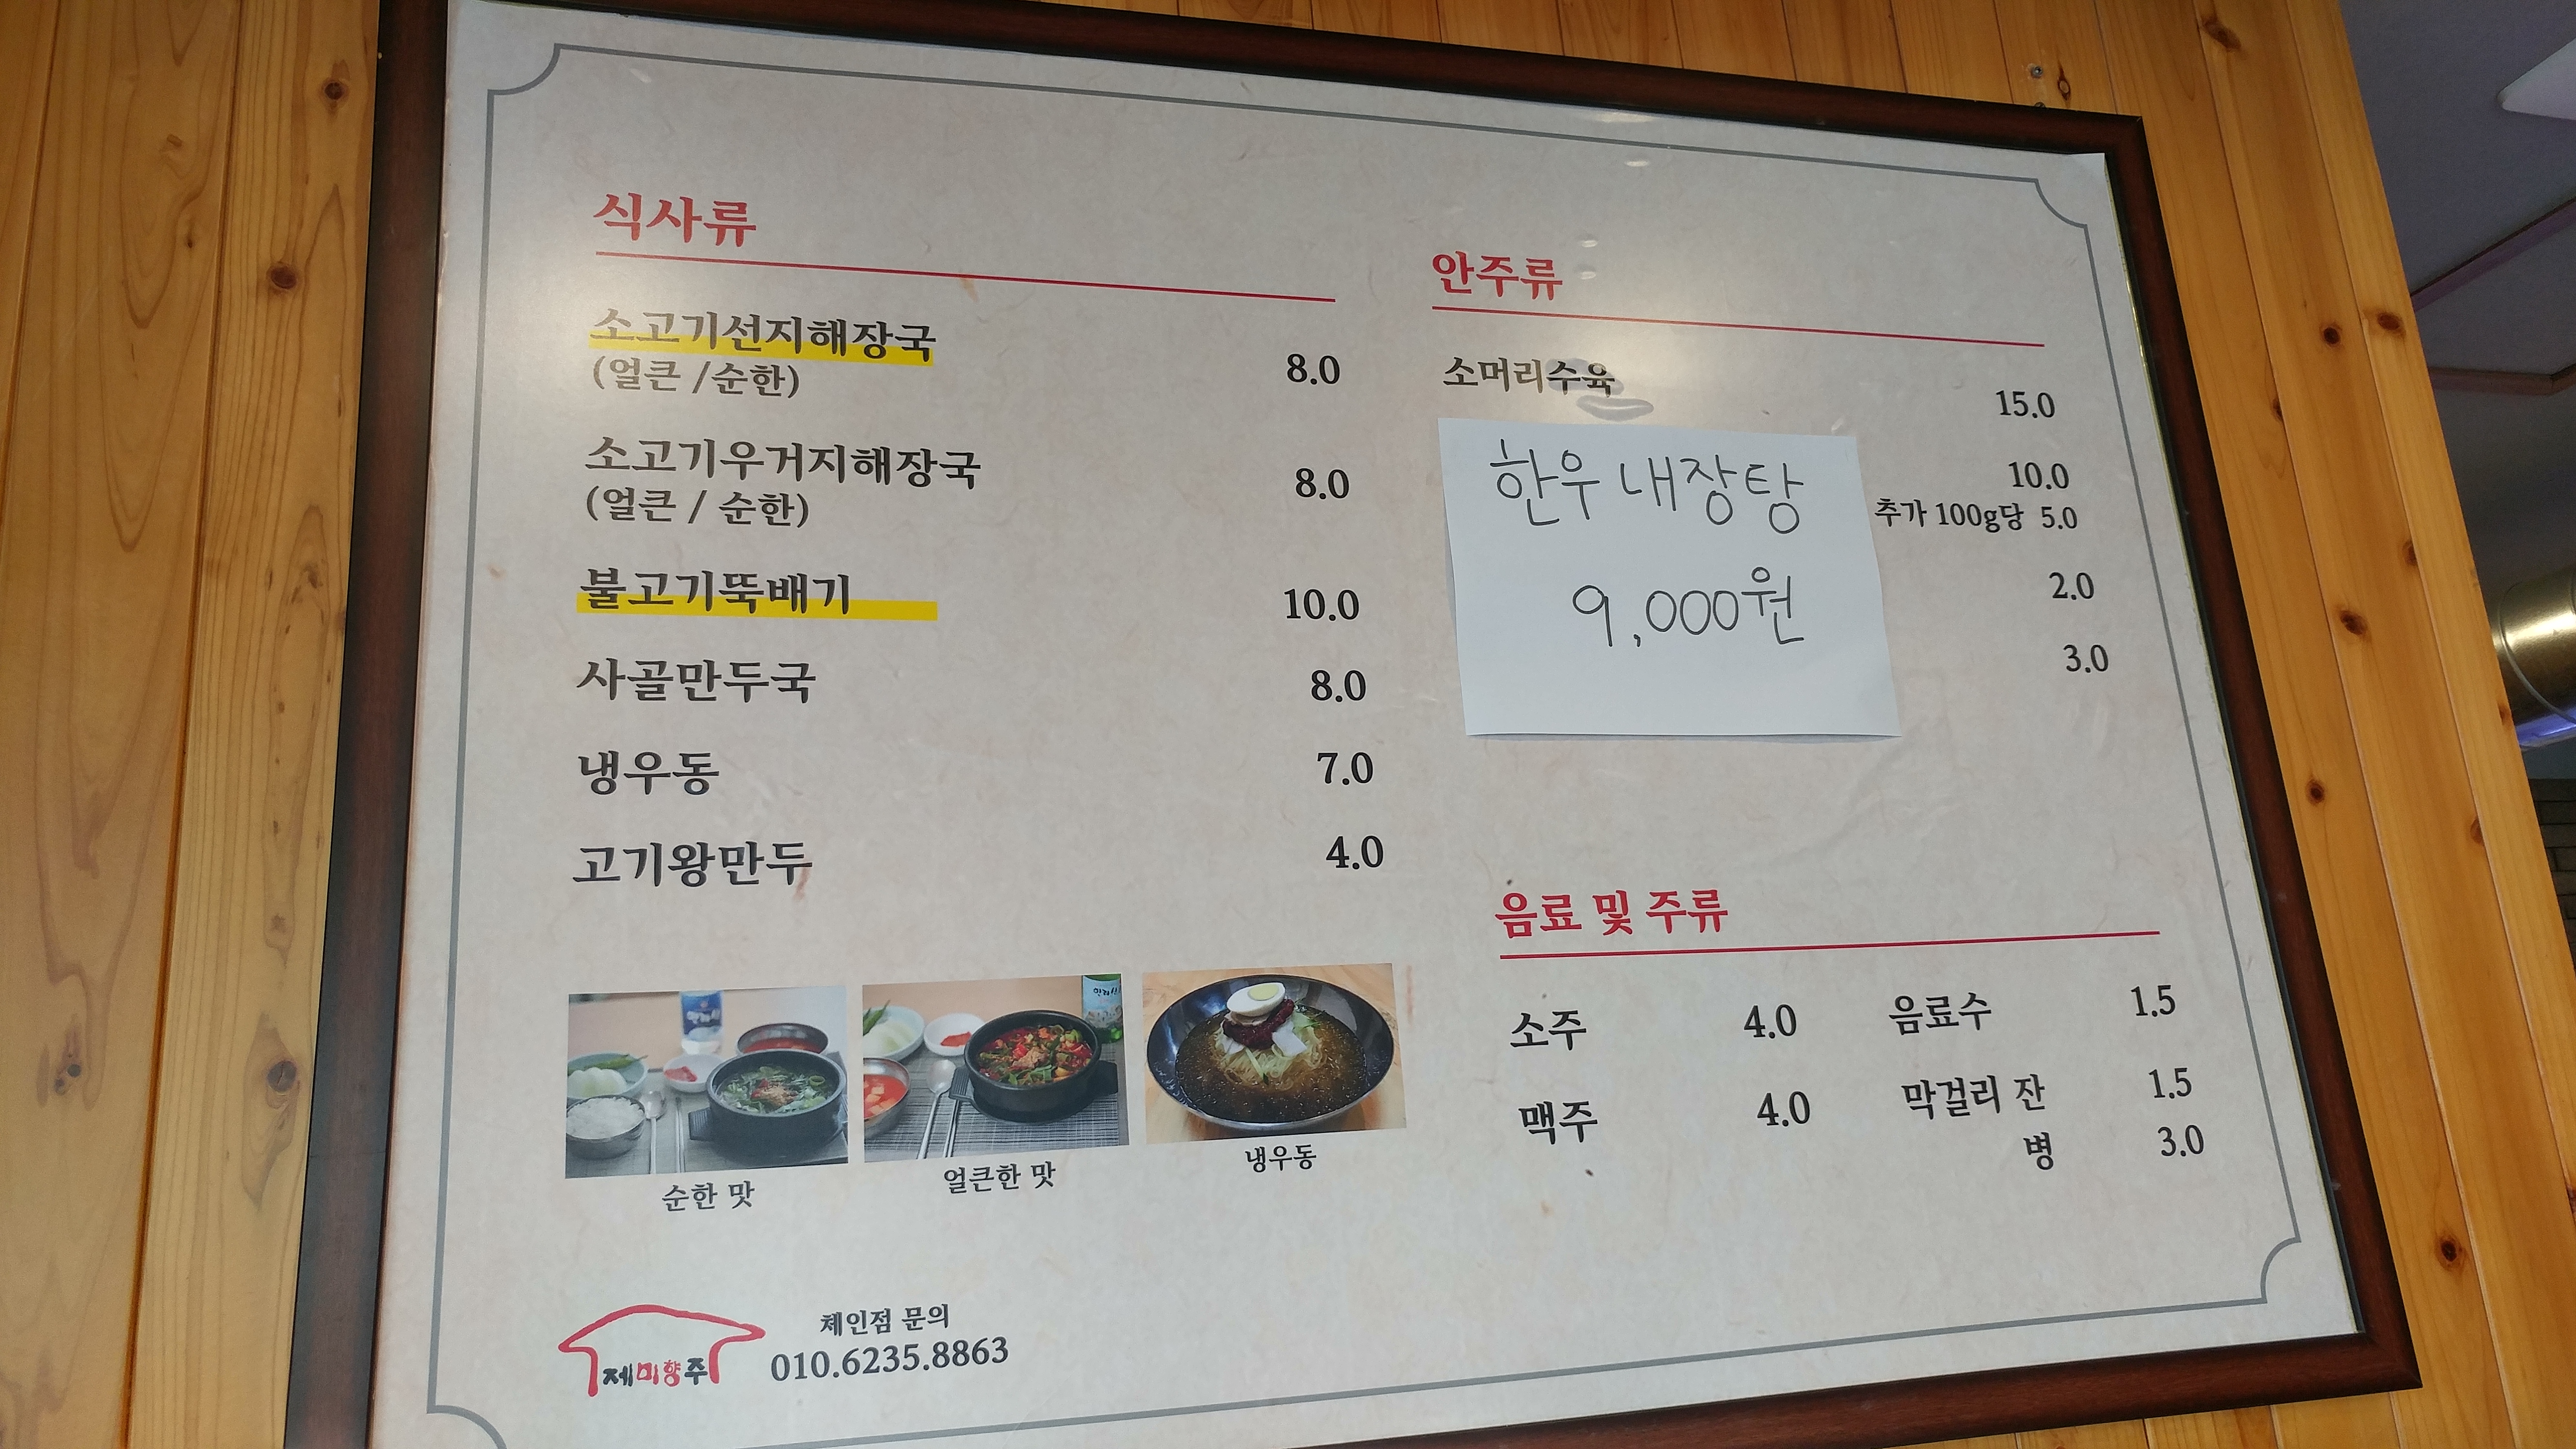 식사류
소고기선지해장국 8.0
(얼큰 /순한)
소고기우거지해장국 8.0
(얼큰 / 순한)
불고기뚝배기 10.0
사골만두국 8.0
냉우동 7.0
고기왕만두 4.0
순한 맛
얼큰한 맛
냉우동
안주류
소머리수육 15.0
10.0
추가 100g당 5.0
2.0
3.0
한우내장탕
9,000원
음료 및 주류
소주 4.0 음료수 1.5
맥주 4.0 막걸리 잔 1.5
병 3.0
제미향주
체인점 문의
010.6235.8863